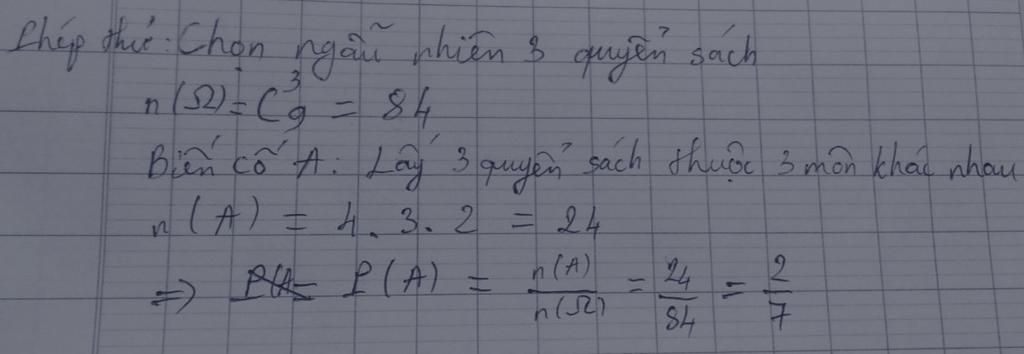 Phép thử: Chọn ngẫu nhiên 3 quyển sách
n(Ω) = C₉³ = 84
Biến cố A: Lấy 3 quyển sách thuộc 3 môn khác nhau
n(A) = 4.3.2 = 24
=> P(A) = n(A)/n(Ω) = 24/84 = 2/7